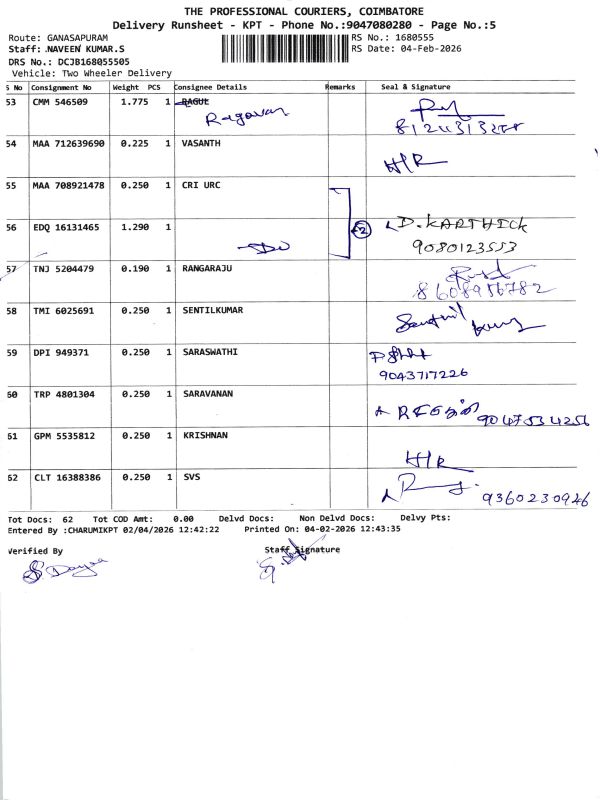 THE PROFESSIONAL COURIERS, COIMBATORE
Delivery Runsheet - KPT - Phone No.:9047080280 - Page No.:5
Route: GANASAPURAM
RS No.: 1680555
Staff: NAVEEN KUMAR.S
RS Date: 04-Feb-2026
DRS No.: DCJB168055505
Vehicle: Two Wheeler Delivery
S No Consignment No Weight PCS Consignee Details Remarks Seal & Signature
53 CMM 546509 1.775 1 RAGUL
Ragavan
54 MAA 712639690 0.225 1 VASANTH
H/R
55 MAA 708921478 0.250 1 CRI URC
56 EDQ 16131465 1.290 1 D.KARTHICK
9080123553
57 TNJ 5204479 0.190 1 RANGARAJU
8608956782
58 TMI 6025691 0.250 1 SENTILKUMAR
59 DPI 949371 0.250 1 SARASWATHI
9043717226
60 TRP 4801304 0.250 1 SARAVANAN
9047534256
61 GPM 5535812 0.250 1 KRISHNAN
H/R
62 CLT 16388386 0.250 1 SVS
9360230946
Tot Docs: 62 Tot COD Amt: 0.00 Delvd Docs: Non Delvd Docs: Delvy Pts:
Entered By :CHARUMIKPT 02/04/2026 12:42:22 Printed On: 04-02-2026 12:43:35
Verified By Staff Signature